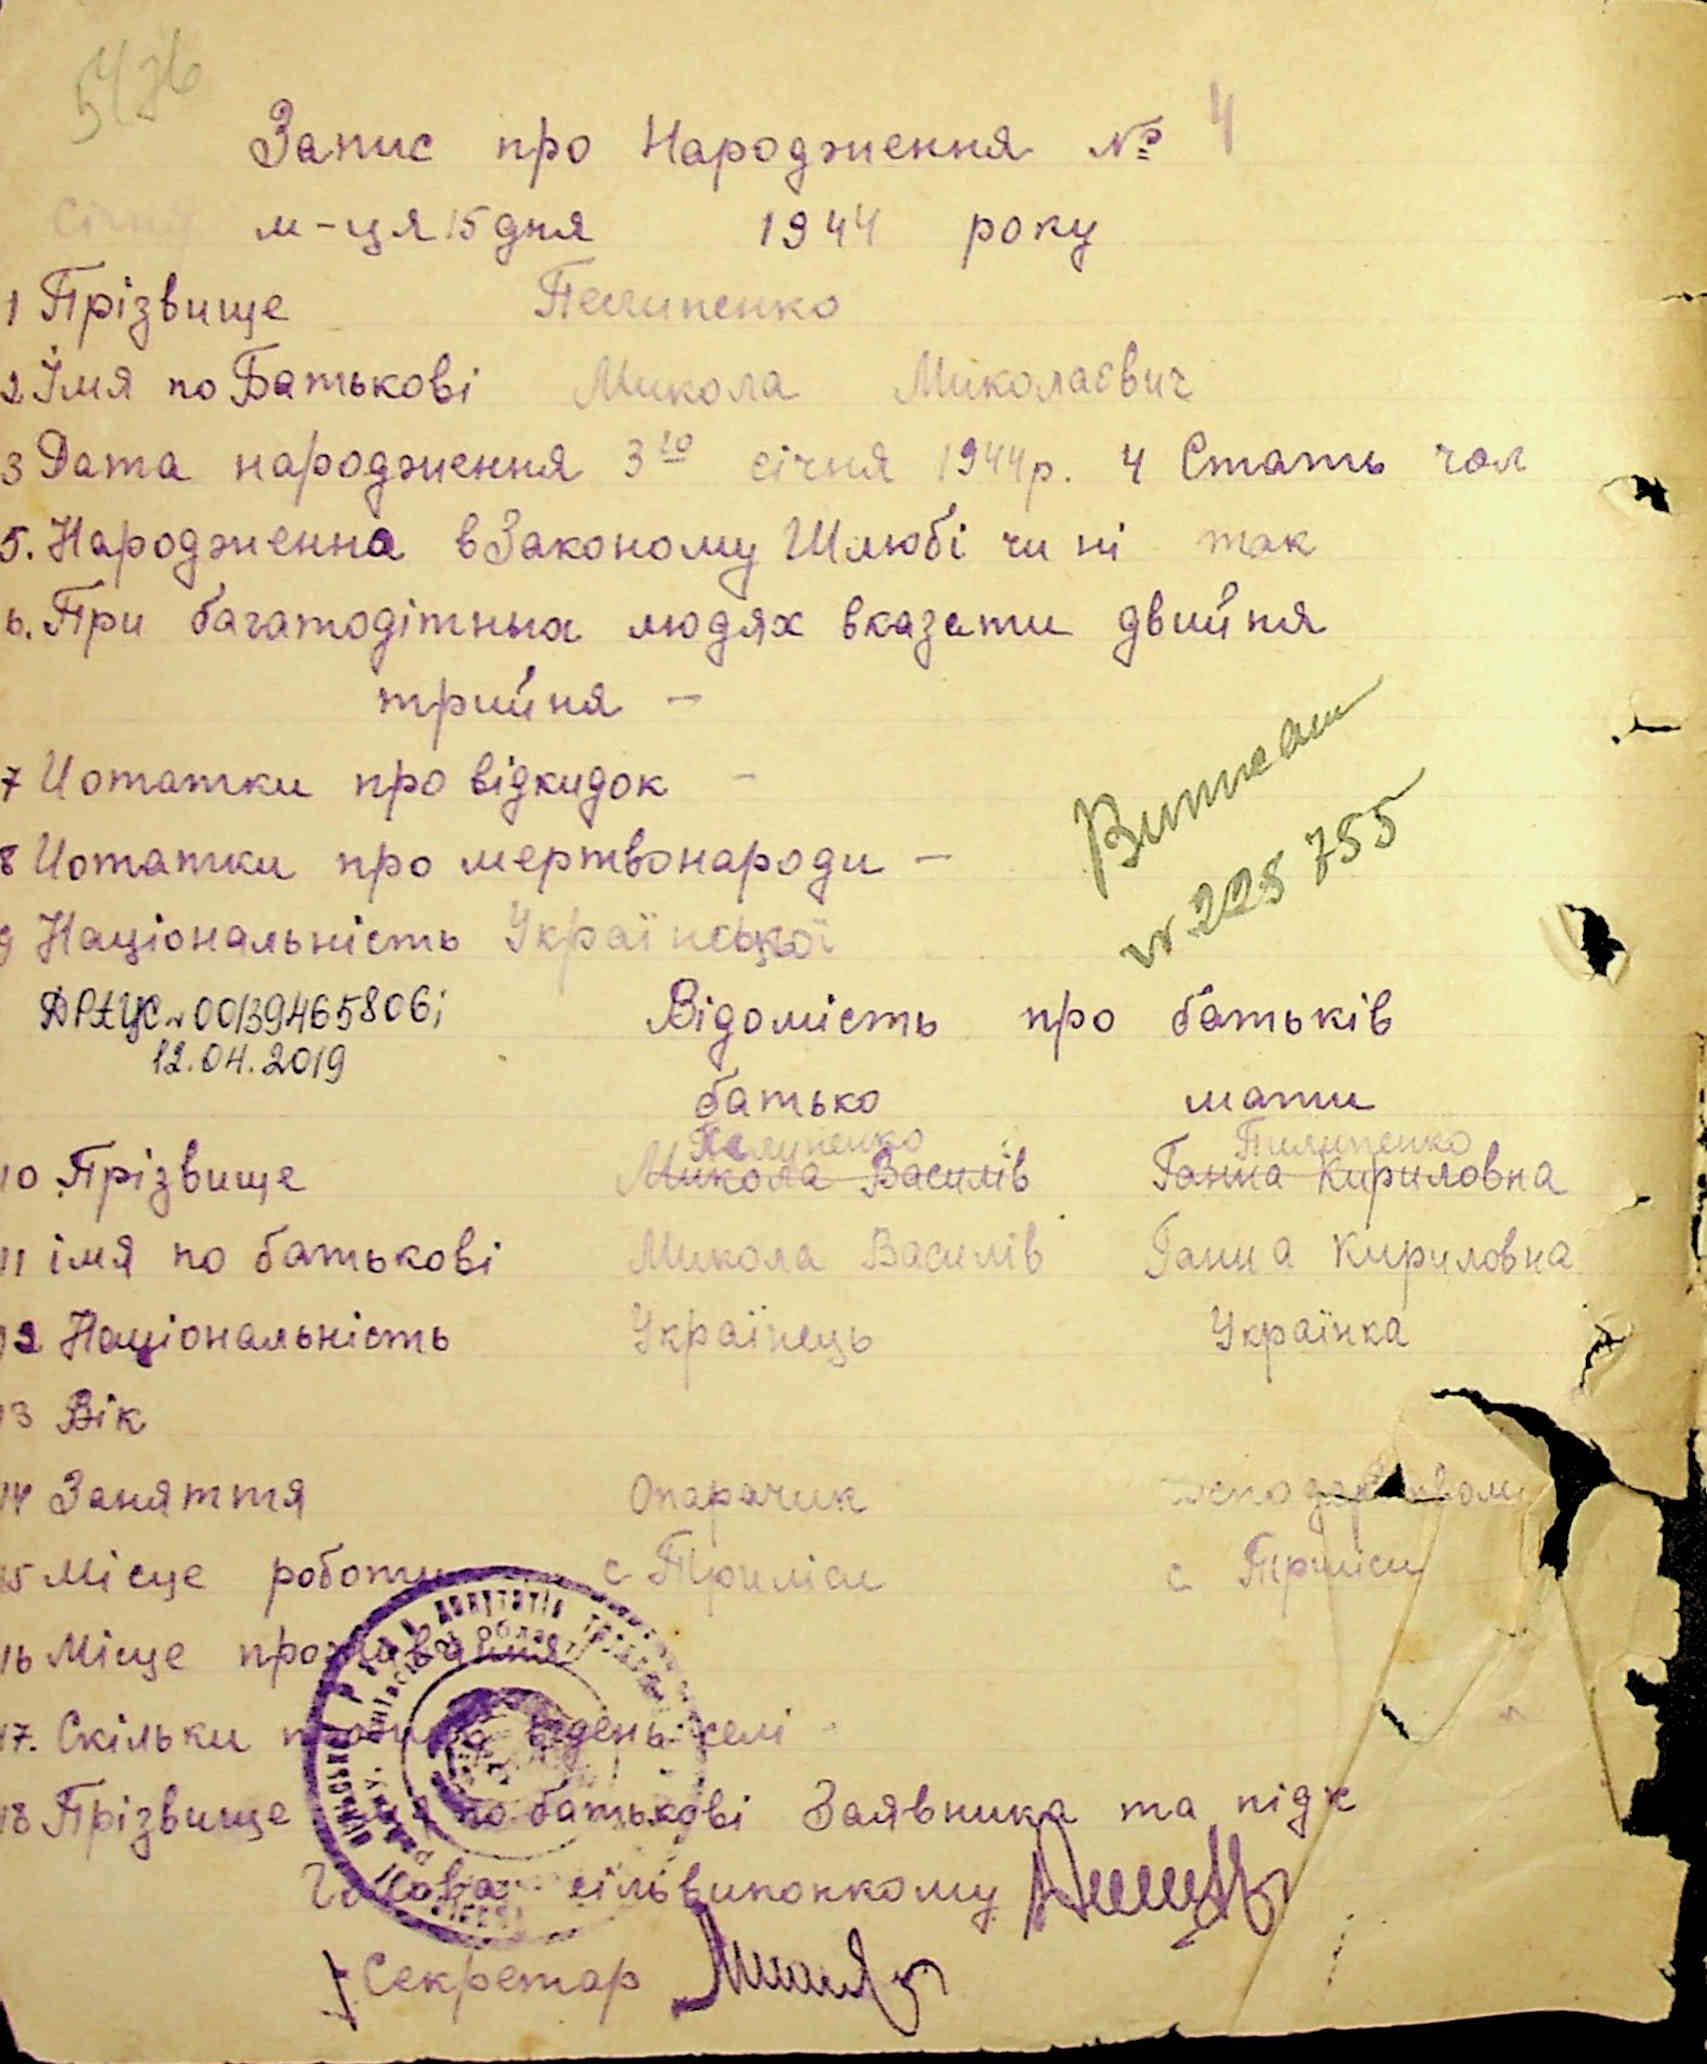 5426
Запис про Народження № 4
Січня м-ця 15 дня 1944 року
1 Прізвище Пелипенко
2 Їмя по Батькові Микола Миколаєвич
3 Дата народження 3го січня 1944р. 4 Стать чол
5. Народженна в Законому Шлюбі чи ні так
6. При багатодітных людях вказати двийня
трийня –
7 Нотатки про відкидок –
8 Нотатки про мертвонароди –
9 Національність Української
Витяг
№ 225 755
ДРАЦС № 00139465806;
12.04.2019
Відомість про батьків
батько мати
Пелипенко Пилипенко
10 Прізвище Микола Василів Ганна Кириловна
11 імя по батькові Микола Василів Ганна Кириловна
12 Національність Українець Українка
13 Вік
14 Заняття Опарачик
15 Місце роботи с Триліси с Триліси
16 Місце проживання
17. Скільки въдень селі -
18 Прізвище імя по батькові Заявника та підк
Голова сільвиконкому
Секретар